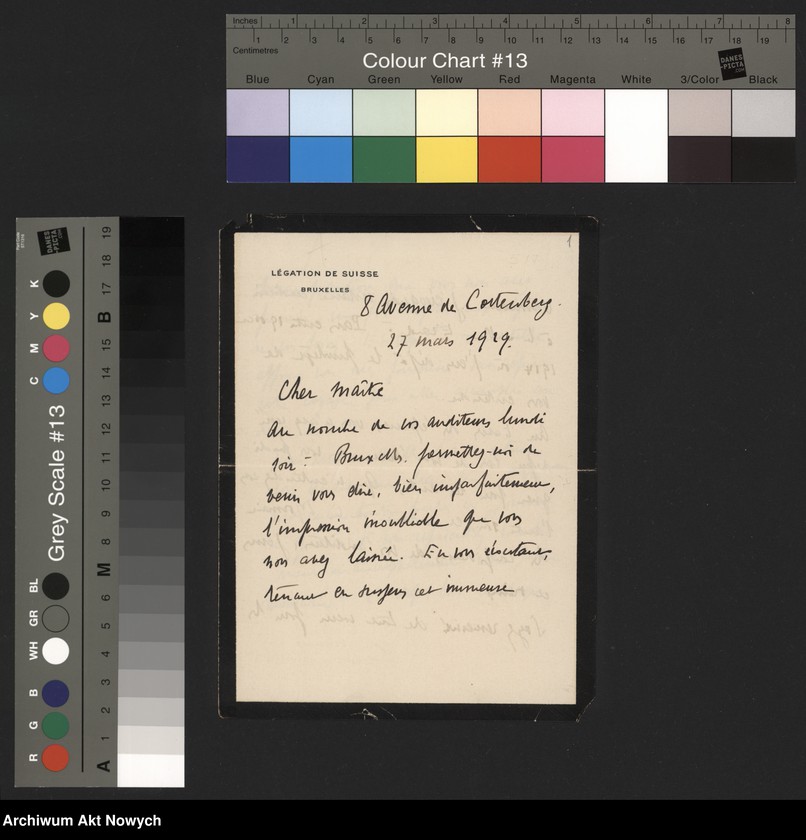 Inches 1 2 3 4 5 6 7 8
Centimetres 1 2 3 4 5 6 7 8 9 10 11 12 13 14 15 16 17 18 19
Colour Chart #13
DANES-PICTA.COM
Blue Cyan Green Yellow Red Magenta White 3/Color Black
Grey Scale #13
DANES-PICTA.COM
R G B WH GR BL C M Y K
A 1 2 3 4 5 6 M 8 9 10 11 12 13 14 15 B 17 18 19
1
LÉGATION DE SUISSE
BRUXELLES
8 Avenue de Cortenberg.
27 mars 1929.
Cher Maître
au nombre de vos auditeurs lundi
soir à Bruxelles, permettez-moi de
venir vous dire, bien imparfaitement,
l'impression inoubliable que vous
nous avez laissée. En vous écoutant,
tenant en suspens cet immense
Archiwum Akt Nowych